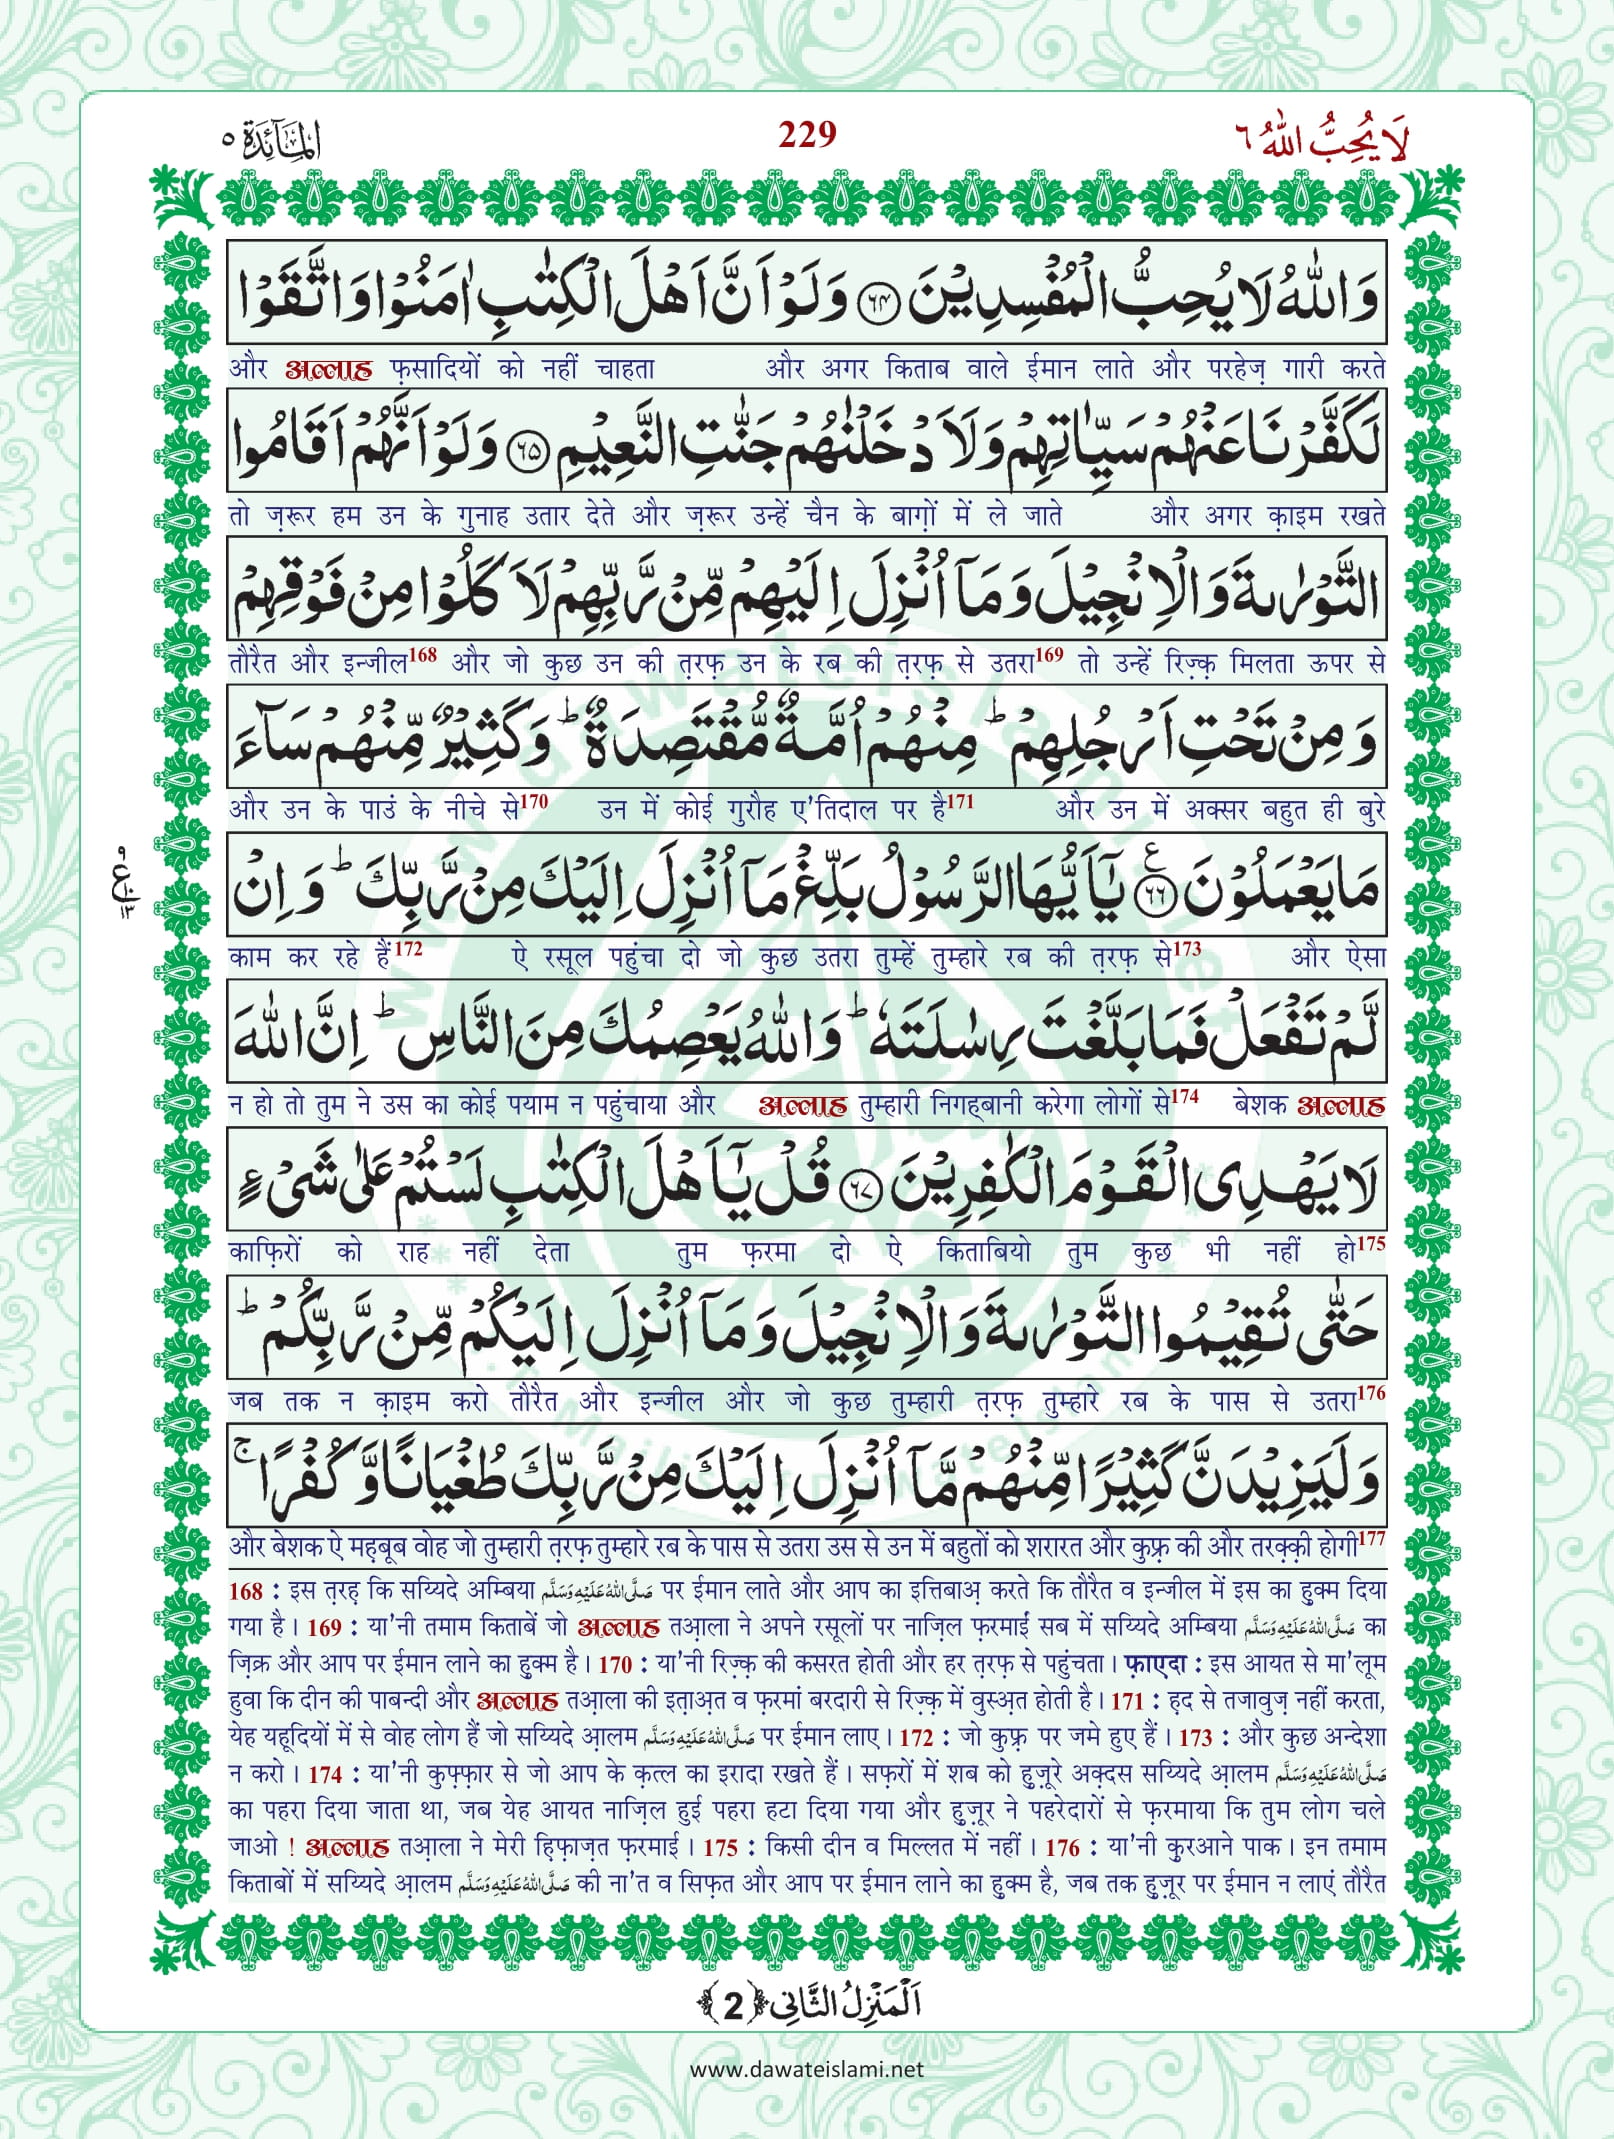 لَا يُحِبُّ اللهُ ٦
229
الْمَآئِدَة ٥
وَاللّٰهُ لَا يُحِبُّ الْمُفْسِدِيْنَ ﴿۶۴﴾ وَلَوْ اَنَّ اَهْلَ الْكِتٰبِ اٰمَنُوْا وَاتَّقَوْا
और अल्लाह फ़सादियों को नहीं चाहता और अगर किताब वाले ईमान लाते और परहेज़ गारी करते
لَكَفَّرْنَا عَنْهُمْ سَيِّاٰتِهِمْ وَلَاَدْخَلْنٰهُمْ جَنّٰتِ النَّعِيْمِ ﴿۶۵﴾ وَلَوْ اَنَّهُمْ اَقَامُوا
तो ज़रूर हम उन के गुनाह उतार देते और ज़रूर उन्हें चैन के बाग़ों में ले जाते और अगर क़ाइम रखते
التَّوْرٰىةَ وَالْاِنْجِيْلَ وَمَاۤ اُنْزِلَ اِلَيْهِمْ مِّنْ رَّبِّهِمْ لَاَكَلُوْا مِنْ فَوْقِهِمْ
तौरैत और इन्जील168 और जो कुछ उन की त़रफ़ उन के रब की त़रफ़ से उतरा169 तो उन्हें रिज़्क़ मिलता ऊपर से
وَمِنْ تَحْتِ اَرْجُلِهِمْ ؕ مِنْهُمْ اُمَّةٌ مُّقْتَصِدَةٌ ؕ وَكَثِيْرٌ مِّنْهُمْ سَآءَ
और उन के पाउं के नीचे से170 उन में कोई गुरौह ए'तिदाल पर है171 और उन में अक्सर बहुत ही बुरे
مَا يَعْمَلُوْنَ ﴿۶۶﴾ ع يٰۤاَيُّهَا الرَّسُوْلُ بَلِّغْ مَاۤ اُنْزِلَ اِلَيْكَ مِنْ رَّبِّكَ ؕ وَاِنْ
काम कर रहे हैं172 ऐ रसूल पहुंचा दो जो कुछ उतरा तुम्हें तुम्हारे रब की त़रफ़ से173 और ऐसा
لَّمْ تَفْعَلْ فَمَا بَلَّغْتَ رِسٰلَتَهٗ ؕ وَاللّٰهُ يَعْصِمُكَ مِنَ النَّاسِ ؕ اِنَّ اللّٰهَ
न हो तो तुम ने उस का कोई पयाम न पहुंचाया और अल्लाह तुम्हारी निगहबानी करेगा लोगों से174 बेशक अल्लाह
لَا يَهْدِى الْقَوْمَ الْكٰفِرِيْنَ ﴿۶۷﴾ قُلْ يٰۤاَهْلَ الْكِتٰبِ لَسْتُمْ عَلٰى شَىْءٍ
काफ़िरों को राह नहीं देता तुम फ़रमा दो ऐ किताबियो तुम कुछ भी नहीं हो175
حَتّٰى تُقِيْمُوا التَّوْرٰىةَ وَالْاِنْجِيْلَ وَمَاۤ اُنْزِلَ اِلَيْكُمْ مِّنْ رَّبِّكُمْ ؕ
जब तक न क़ाइम करो तौरैत और इन्जील और जो कुछ तुम्हारी त़रफ़ तुम्हारे रब के पास से उतरा176
وَلَيَزِيْدَنَّ كَثِيْرًا مِّنْهُمْ مَّاۤ اُنْزِلَ اِلَيْكَ مِنْ رَّبِّكَ طُغْيَانًا وَّكُفْرًا ۚ
और बेशक ऐ मह़बूब वोह जो तुम्हारी त़रफ़ तुम्हारे रब के पास से उतरा उस से उन में बहुतों को शरारत और कुफ़्र की और तरक़्क़ी होगी177
168 : इस त़रह़ कि सय्यिदे अम्बिया صَلَّى اللهُ عَلَيْهِ وَسَلَّم पर ईमान लाते और आप का इत्तिबाअ़ करते कि तौरैत व इन्जील में इस का हुक्म दिया
गया है। 169 : या'नी तमाम किताबें जो अल्लाह तआ़ला ने अपने रसूलों पर नाज़िल फ़रमाईं सब में सय्यिदे अम्बिया صَلَّى اللهُ عَلَيْهِ وَسَلَّم का
ज़िक्र और आप पर ईमान लाने का हुक्म है। 170 : या'नी रिज़्क़ की कसरत होती और हर त़रफ़ से पहुंचता। फ़ाएदा : इस आयत से मा'लूम
हुवा कि दीन की पाबन्दी और अल्लाह तआ़ला की इत़ाअ़त व फ़रमां बरदारी से रिज़्क़ में वुस्अ़त होती है। 171 : ह़द से तजावुज़ नहीं करता,
येह यहूदियों में से वोह लोग हैं जो सय्यिदे आ़लम صَلَّى اللهُ عَلَيْهِ وَسَلَّم पर ईमान लाए। 172 : जो कुफ़्र पर जमे हुए हैं। 173 : और कुछ अन्देशा
न करो। 174 : या'नी कुफ़्फ़ार से जो आप के क़त्ल का इरादा रखते हैं। सफ़रों में शब को हुज़ूरे अक़्दस सय्यिदे आ़लम صَلَّى اللهُ عَلَيْهِ وَسَلَّم
का पहरा दिया जाता था, जब येह आयत नाज़िल हुई पहरा हटा दिया गया और हुज़ूर ने पहरेदारों से फ़रमाया कि तुम लोग चले
जाओ ! अल्लाह तआ़ला ने मेरी ह़िफ़ाज़त फ़रमाई। 175 : किसी दीन व मिल्लत में नहीं। 176 : या'नी क़ुरआने पाक। इन तमाम
किताबों में सय्यिदे आ़लम صَلَّى اللهُ عَلَيْهِ وَسَلَّم की ना'त व सिफ़त और आप पर ईमान लाने का हुक्म है, जब तक हुज़ूर पर ईमान न लाएं तौरैत
اَلْمَنْزِلُ الثَّانِى ﴿2﴾
www.dawateislami.net